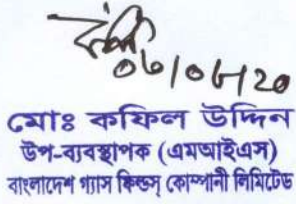 ০৬/০৮/২০
মোঃ কফিল উদ্দিন
উপ-ব্যবস্থাপক (এমআইএস)
বাংলাদেশ গ্যাস ফিল্ডস্ কোম্পানী লিমিটেড